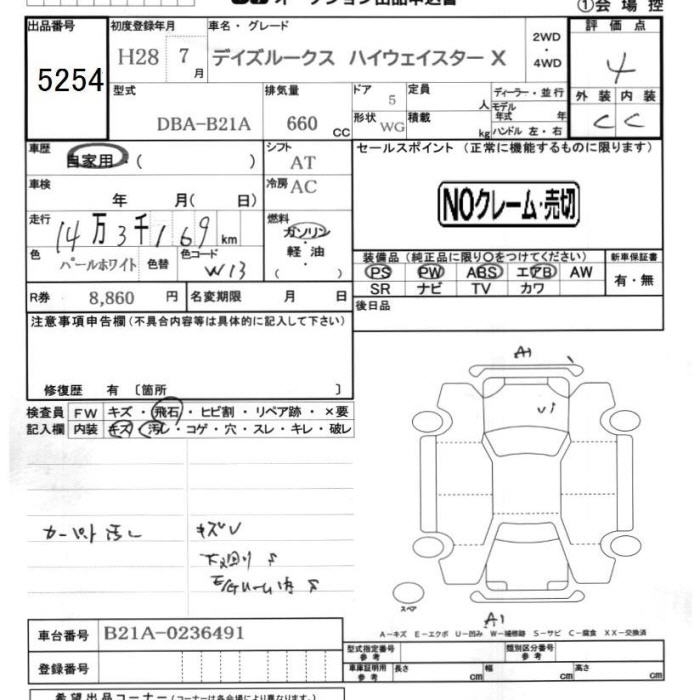 オークション出品申込書
①会場控
出品番号 初度登録年月 車名・グレード 評価点
5254 H28 7月 デイズルークス ハイウェイスター X 2WD・4WD 4
型式 排気量 ドア 定員 ディーラー・並行 外装 内装
DBA-B21A 660 CC 5 人 モデル年式 年 C C
形状 WG 積載 kg ハンドル 左・右
車歴 シフト セールスポイント (正常に機能するものに限ります)
自家用・( ) AT
車検 冷房 AC
年 月( 日) NOクレーム・売切
走行 燃料
14万3千169km ガソリン・軽油・( )
色 色替 色コード 装備品 (純正品に限り○をつけてください) 新車保証書
パールホワイト W13 PS PW ABS エアB AW 有・無
SR ナビ TV カワ
R券 8,860 円 名変期限 月 日 後日品
注意事項申告欄(不具合内容等は具体的に記入して下さい)
修復歴 有 〔箇所 〕
検査員 FW キズ・飛石・ヒビ割・リペア跡・×要
記入欄 内装 キズ・汚レ・コゲ・穴・スレ・キレ・破レ
A1
カーペット汚レ キズU
下廻りS
スペア
A1
A-キズ E-エクボ U-凹み W-補修跡 S-サビ C-腐食 XX-交換済
車台番号 B21A-0236491
型式指定番号 参考 類別区分番号 参考
登録番号 車庫証明用 参考 長さ cm 幅 cm 高さ cm
希望出品コーナー(コーナーは各会場により異なります。)